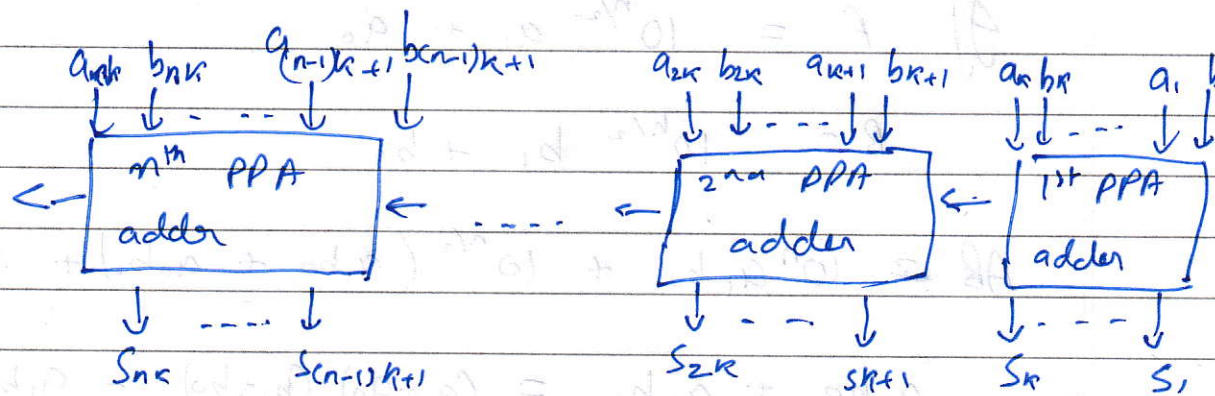 aₙₖ bₙₖ a(n-1)k+1 b(n-1)k+1 a₂ₖ b₂ₖ aₖ₊₁ bₖ₊₁ aₖ bₖ a₁ b
nᵗʰ PPA 2nd PPA 1st PPA
adder adder adder
Sₙₖ S(n-1)k+1 S₂ₖ Sₖ₊₁ Sₖ S₁